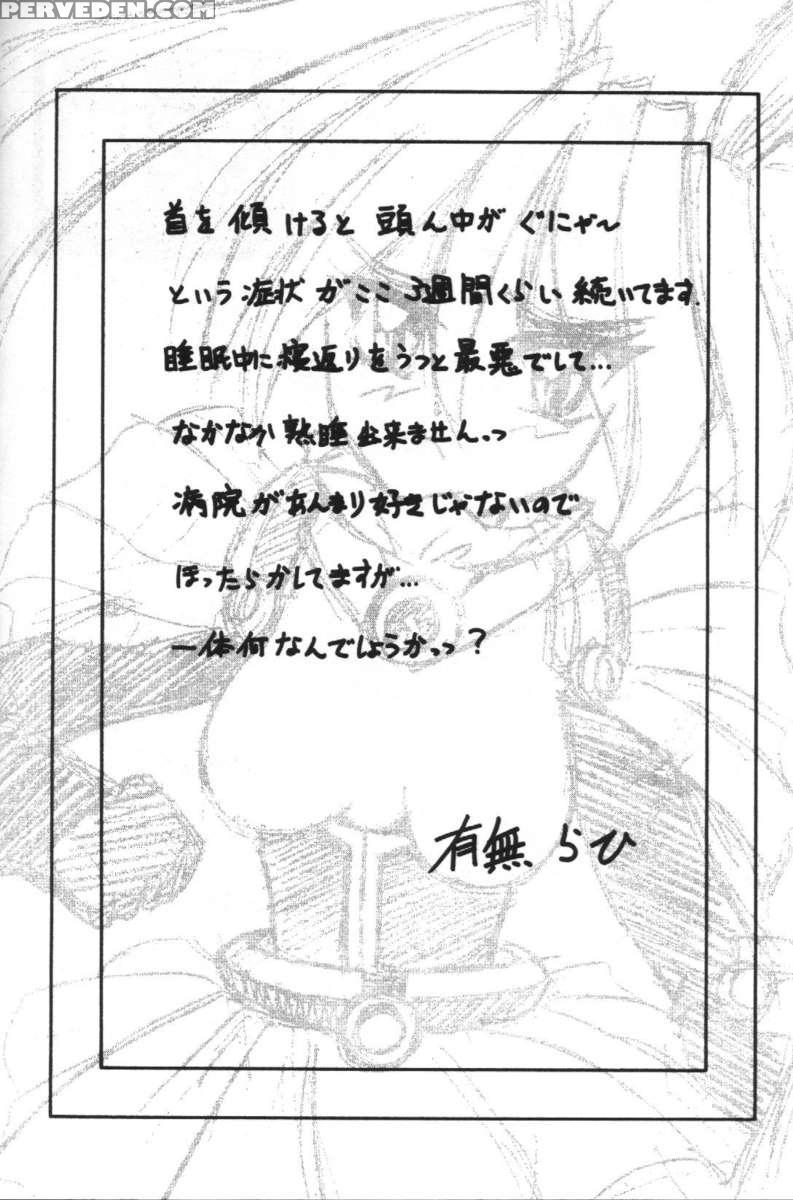 PERVEDEN.COM
首を傾けると頭ん中がぐにゃ〜
という症状がここ3週間くらい続いてます.
睡眠中に寝返りをうつと最悪でして...
なかなか熟睡出来ませんっっ
病院があんまり好きじゃないので
ほったらかしてますが...
一体何なんでしょうかっっ?
有無らひ